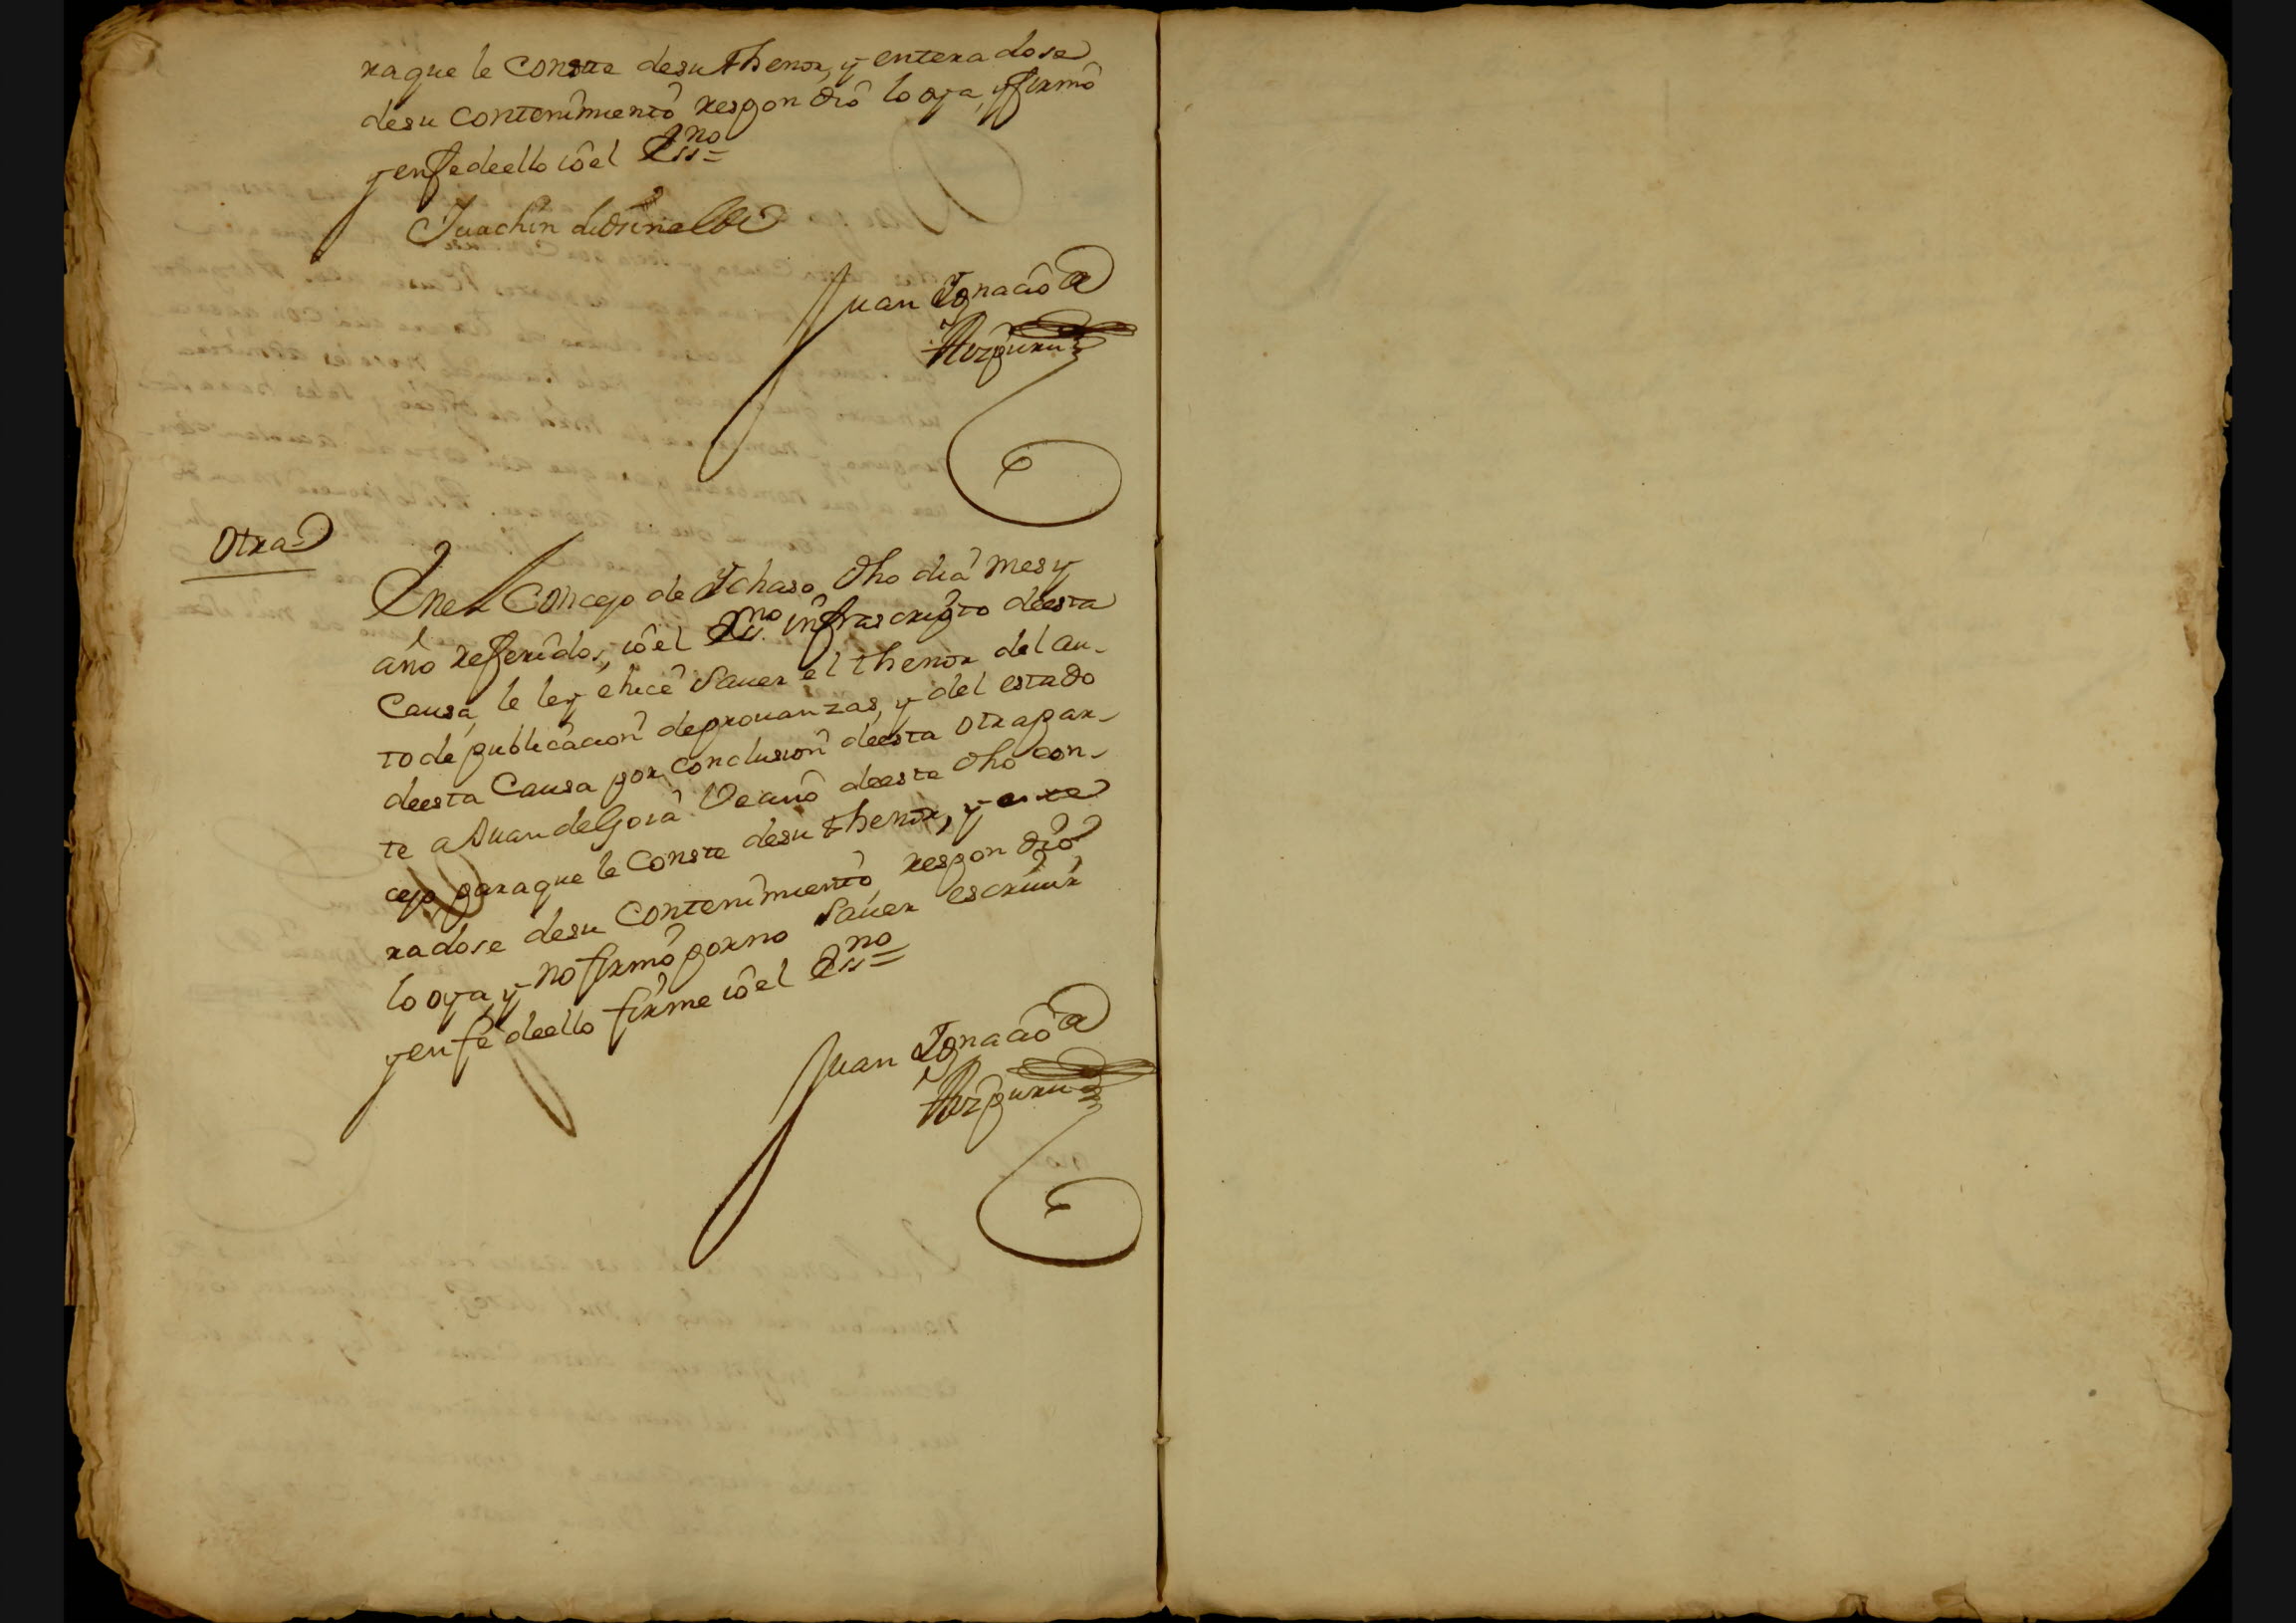 raque le Conste desu thenor, y enteradose
desu Contenimiento respondio lo oya, y firmó
y enfe deello io el Essno=
Juachin de
Juan Ignacio
Aizpuru
Otra
Enel Concejo de Ychaso dho dia mes y
año referidos, io el Essno. infrascripto deesta
Causa, le ley e hice Sauer el thenor del au-
to de publicacion deprouanzas, y del estado
deesta Causa por conclusion deesta otrapar-
te a Juan deGoia Vecino deeste dho con-
cejo, paraque le Conste desu thenor, y ente
radose desu Contenimiento respondio
lo oya, y no firmó porno Sauer escriuir
y enfe deello firme io el Essno=
Juan Ignacio
Aizpuru